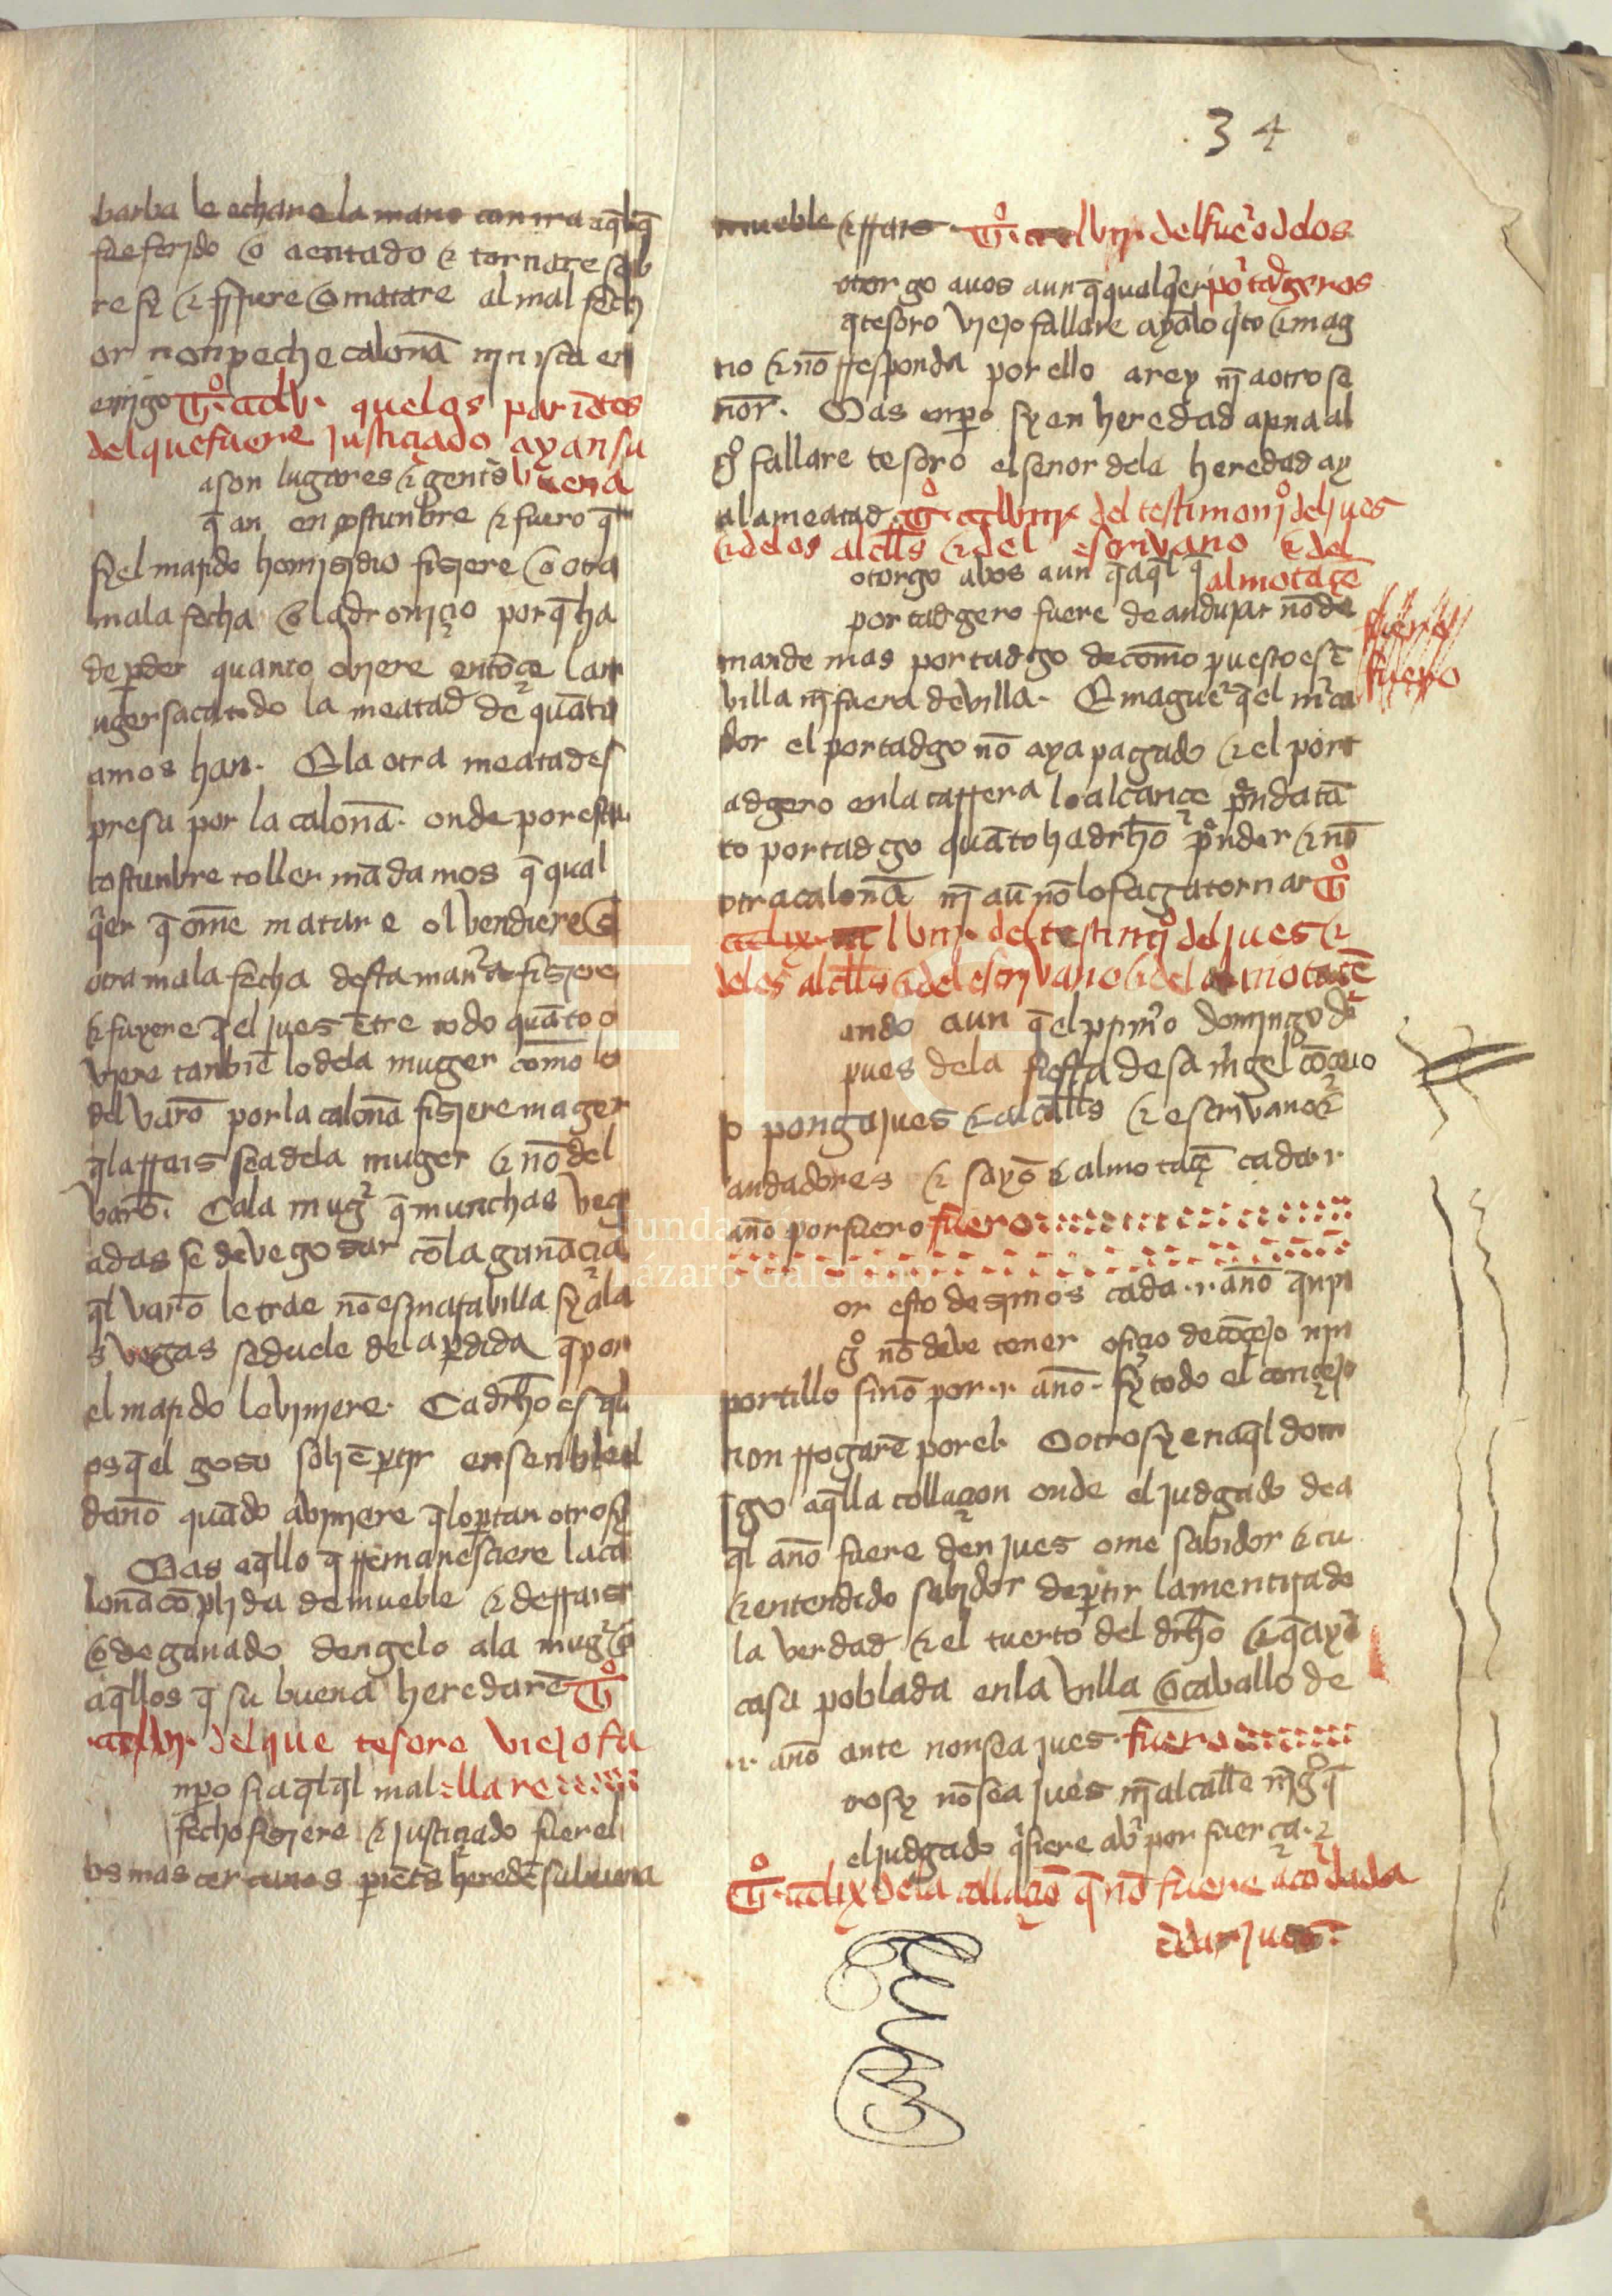 34
barba le echare la mano contra aq̄l q̄
fue ferido o acentado & tornare sob
re sy & ffiriere o matare al mal fech
or non peche calonā nin ista en
emigo Tº. cclv. que los parīētes
del que fuere justiciado ayan su
buena
ason lugares & gentes
q̄ an en costunbre & fuero q̄
sy el marido homisidio fisiere o otra
mala fecha o ladronicio por q̄ ha
de perder quanto oviere entōçe la m
uger sacando la meatad de quāto
amos han. E la otra meatad es
presa por la calonā. onde por esta
costunbre toller mādamos q̄ qual
q̄er q̄ ome matare ol vendiere o
otra mala fecha desta manera fisiere
& fuxere q̄ el jues ētre todo quāto o
viere tanbiē lo dela muger como lo
del varō por la calonā fisiere mager
q̄ la rrais sea dela muger & nō del
varō. Ca la mugr q̄ munchas veg
adas se deve gosar cō la ganācia
q̄l varō le trae nō es maravilla sy a la
s vegas se duele de la perdida q̄ por
el marido le viniere. Ca drho es q̄ l
os q̄ el goso sabē partir ensenble el
dano quādo aviniere q̄ lo partan otrosy
Mas aq̄llo q̄ rremanesciere la ca
lonā cōplida de mueble & de rrais
o de ganado dengelo a la mugr o
aq̄llos q̄ su buena heredarē Tº
.cclvi. del que tesoro viejo fa
llare
npo sy aq̄l q̄l mal
fecho fisiere & justiciado fuere l
os mas cercanos pariētes heredē su buena
mueble & rrais. Tº. cclvii. del fuero delos
portadgeros
otorgo avos aun q̄ qualq̄er
q̄ tesoro viejo fallare ayalo q̄to & mag
no & nō rresponda por ello a rey nj̄ a otro se
nor. Mas enpero sy en heredad agena al
gº fallare tesoro el senor dela heredad ay
a la meatad. Tº cclviii del testimonjº del jues
& delos alcalls & del escrivano & del
almotacē
otorgo abos aun q̄ aq̄l q̄
portadgero fuere de andujar nō de
fuero
mande mas portadgo de como puesto es ē
fuero
villa nj̄ fuera de villa. E maguer q̄ el merca
dor el portadgo nō aya pagado & el port
adgero en la carrera lo alcançe prenda tā
to portadgo quāto ha drho prender & nō
otra calonā nj̄ aū nō lo faga tornar Tº
lviii. del testimº del jues &
delos alcalls & del escrivano & del almotacē
ando aun q̄ el primº domingo de
pues dela fiesta de sā mgel cōcejo
o ponga jues & alcalls & escrivano &
andadores & sayō & almotacē cada .i.
año por fuero fuero
or esto desimos cada .i. año q̄ nin
gº nō deve tener oficio de cōcejo nin
portillo sinō por .i. año. sy todo el concejo
non rrogarē por el. O otrosy en aq̄l dom
igo aq̄lla collaçon onde el judgado de a
q̄l año fuere den jues ome sabidor & cu
& entendido sabidor de partir la mentira de
la verdad & el tuerto del drho & q̄ aya
casa poblada en la villa o caballo de
.i. año ante non sea jues. fuero
trosy nō sea jues nj̄ alcalle nj̄gº q̄
el judgado q̄siere aver por fuerça.
Tº. cclix dela collaçō q̄ nō fuere acordada
ē dar jues.